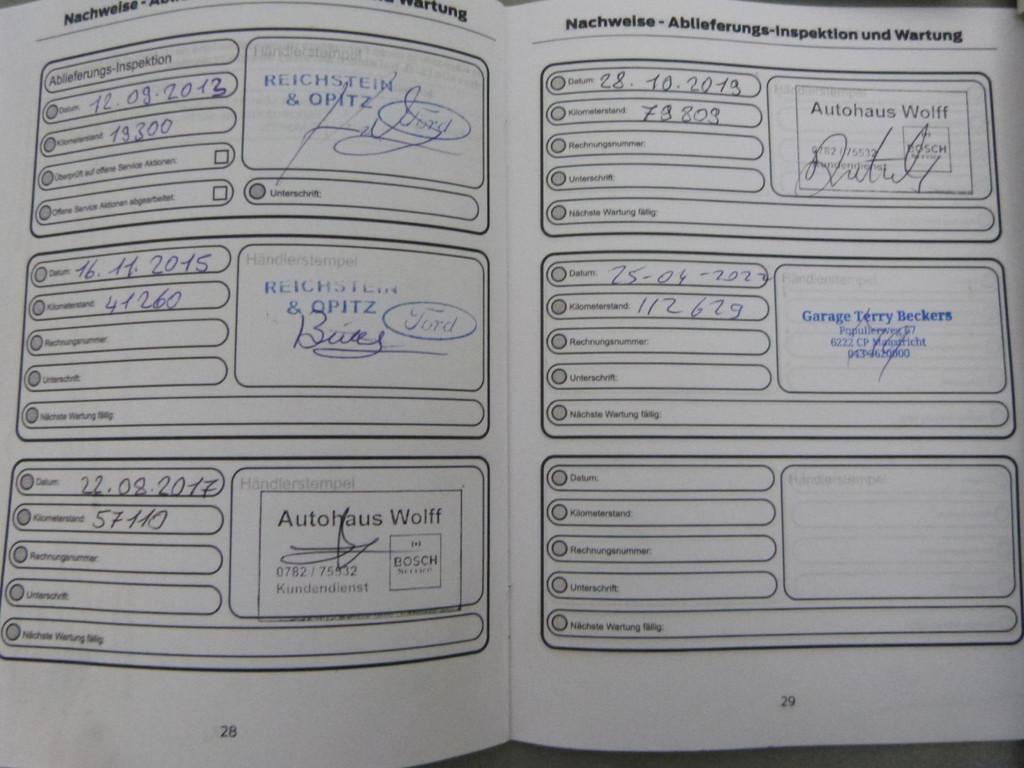 Nachweise - Ablieferungs-Inspektion und Wartung
Ablieferungs-Inspektion
Datum: 12.09.2013
Kilometerstand: 19300
Überprüft auf offene Service Aktionen:
Offene Service Aktionen abgearbeitet:
Händlerstempel
REICHSTEIN
& OPITZ
Ford
Unterschrift:
Datum: 16.11.2015
Kilometerstand: 41260
Rechnungsnummer:
Unterschrift:
Nächste Wartung fällig:
Händlerstempel
REICHSTEIN
& OPITZ
Ford
Datum: 22.08.2017
Kilometerstand: 57110
Rechnungsnummer:
Unterschrift:
Nächste Wartung fällig:
Händlerstempel
Autohaus Wolff
0782 / 75532
Kundendienst
BOSCH
Service
28
Nachweise - Ablieferungs-Inspektion und Wartung
Datum: 28.10.2019
Kilometerstand: 79809
Rechnungsnummer:
Unterschrift:
Nächste Wartung fällig:
Händlerstempel
Autohaus Wolff
0782 / 75532
Kundendienst
BOSCH
Service
Datum: 25-04-2022
Kilometerstand: 112629
Rechnungsnummer:
Unterschrift:
Nächste Wartung fällig:
Händlerstempel
Garage Terry Beckers
6222 CP Maastricht
Datum:
Kilometerstand:
Rechnungsnummer:
Unterschrift:
Nächste Wartung fällig:
Händlerstempel
29